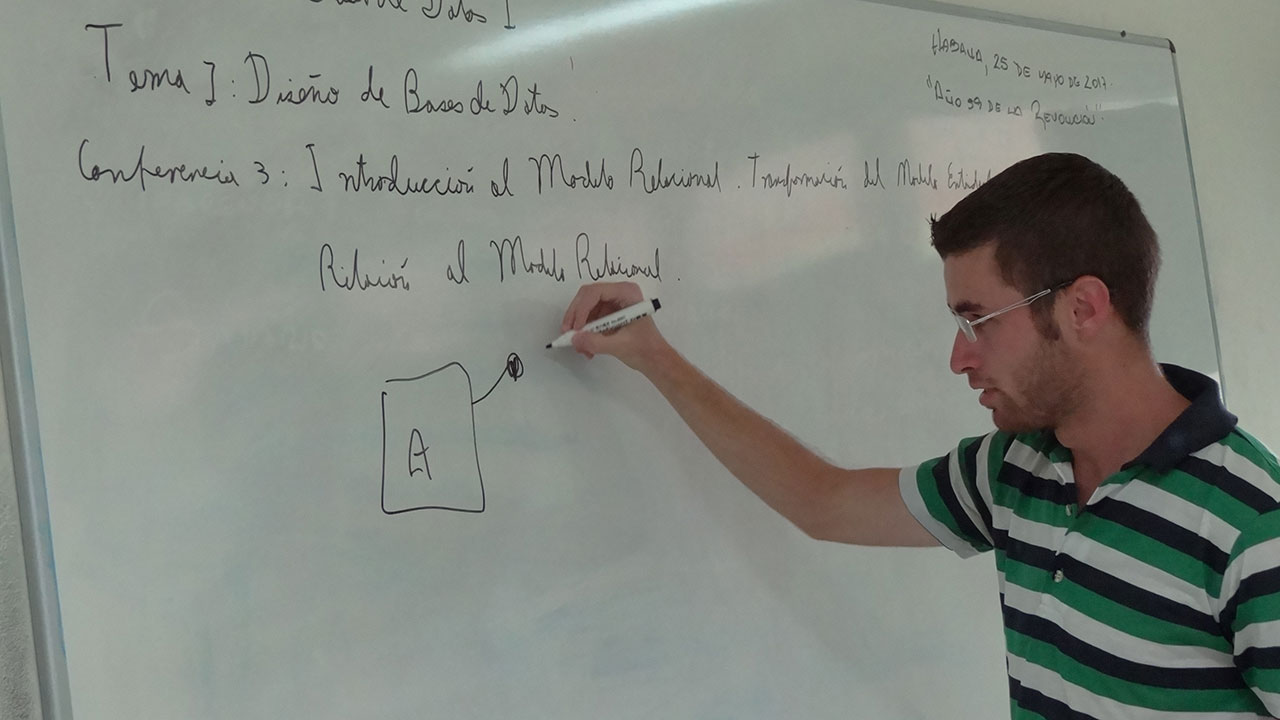 de Datos I
Tema I: Diseño de Bases de Datos.
HABANA, 25 DE MAYO DE 2017.
"AÑO 59 DE LA REVOLUCIÓN".
Conferencia 3: Introducción al Modelo Relacional. Transformación del Modelo Entidad
Relación al Modelo Relacional.
A